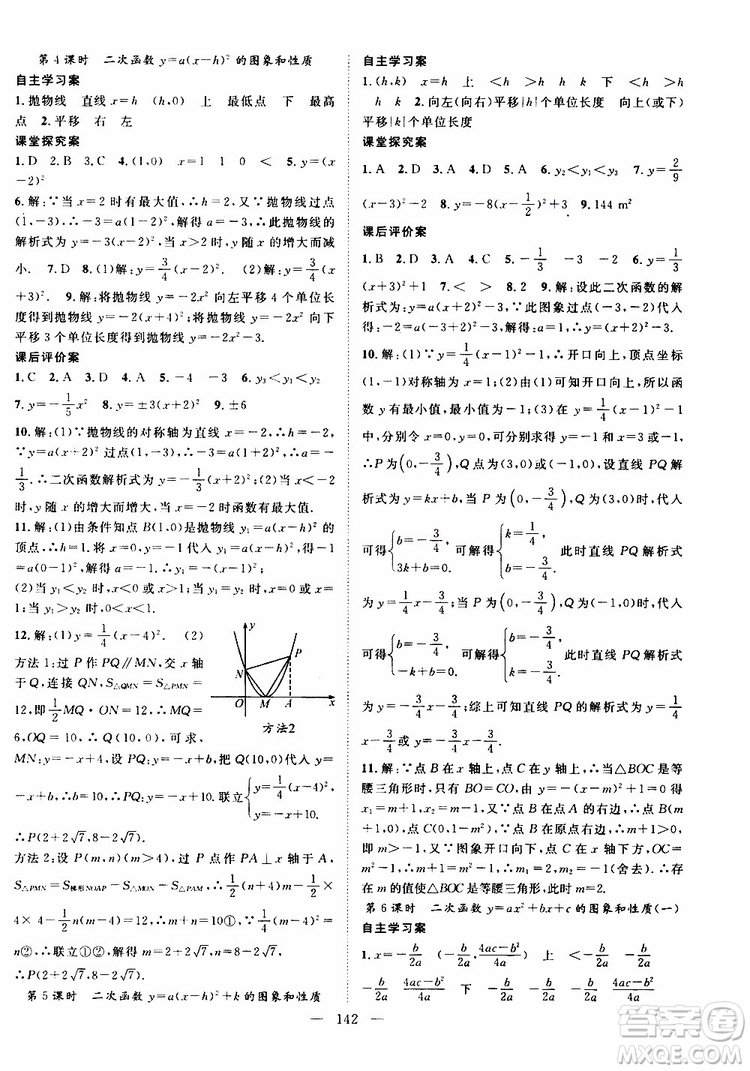 第4课时 二次函数 y=a(x-h)² 的图象和性质
自主学习案
1.抛物线 直线x=h (h,0) 上 最低点 下 最高
点 2.平移 右 左
课堂探究案
1.D 2.B 3.C 4.(1,0) x=1 1 0 < 5.y=(x
-2)²
6.解:∵当x=2时有最大值,∴h=2,又∵抛物线过点
(1,-3),∴-3=a(1-2)²,解得a=-3,∴此抛物线的
解析式为y=-3(x-2)². 当x>2时y随x的增大而减
小. 7.D 8.(1)解:y=3/4(x-2)². (2)解:y=3/4(x
-3)² 9.解:将抛物线y=-2x²向左平移4个单位长
度得到抛物线y=-2(x+4)²;将抛物线y=-2x²向下
平移3个单位长度得到抛物线y=-2x²-3.
课后评价案
1.C 2.A 3.D 4.A 5.-4 -4 6.y₃<y₂<y₁
7.y=-1/5x² 8.y=±3(x+2)² 9.±6
10.解:(1)∵抛物线的对称轴为直线x=-2,∴h=-2,
∵y=a(x+2)²过点(1,-3),∴-3=a(1+2)²,∴a=
-1/3,∴二次函数解析式为y=-1/3(x+2)² (2)当x<-2
时,y随x的增大而增大. (3)函数有最大值.
11.解:(1)由条件知点B(1,0)是抛物线y₁=a(x-h)²的
顶点,∴h=1. 把x=0,y=-1代入y₁=a(x-1)²,得a=-1
∴抛物线的解析式为y₁=-(x-1)².
(2)当y₁<y₂时,x<0或x>1;当y₁>y₂时,0<x<
1;当y₁=y₂时,x=0或x=1.
12.解:(1)y=1/4(x-4)². (2)
方法1:过P作PQ∥MN,交x轴
于Q,连接QN,S△QMN=S△PMN=
12,即1/2MQ·ON=12,∴MQ=
6,OQ=10,∴Q(10,0)可求,
y N P O M A x
方法2
MN:y=-x+4,设PQ:y=-x+b,把Q(10,0)代入得b
=10,∴PQ的解析式为y=-x+10,联立{
∴P(2+2√7,8-2√7).
方法2:设P(m,n)(m>4),过点P作PA⊥x轴于点A,
S△PMN=S梯形NOAP-S△MON-S△PAM,即1/2(n+4)×m-1/2
×4×4-1/2(m-4)n=12,∴m+n=10①,又1/4(m-4)²=
n②,∴联立①②,解得m=2+2√7,n=8-2√7,
∴P(2+2√7,8-2√7).
第5课时 二次函数 y=a(x-h)²+k 的图象和性质
自主学习案
1.(h,k) x=h 上 <h >h 下 <h >h
h 上 2.向左(向右)平移|h|个单位长度 向上(或下)
平移|k|个单位长度
课堂探究案
1.A 2.D 3.A 4.A 5.D 6.y₂<y₁<y₃ 7.y=2/9
(x-3)²-2 8.y=-8(x-1/2)²+3 9.144 m²
课后评价案
1.B 2.D 3.B 4.C 5.-1/3 -1 6.y=-1/3
(x+3)²+1 7.< > 8.2 9.解:设此二次函数的解
析式为y=a(x+3)²-1,∵此图象过点(-3,-2)代入
10.解:(1)∵y=1/4(x-1)²-1,∴开口向上,顶点坐标
(1,-1)对称轴为x=1. (2)由可知开口向上,所以函
数y有最小值,最小值为-1. (3)在y=1/4(x-1)²-1
中,分别令x=0,y=0,可分别求出与y轴、x轴的交点,
∴P为(0,-3/4)或(0,-3/4),Q(3,0),设直线PQ解
析式为y=kx+b,当P为(0,-3/4),Q为(3,0)代入
可得{b=-3/4 3k+b=0 可解得{k=1/4 b=-3/4 此时直线PQ解析式
为y=1/4x-3/4;当P为(0,-3/4),Q为(-1,0)代入
可得{b=-3/4 -k+b=0 可解得{k=-3/4 b=-3/4 此时直线PQ解析式
为y=-3/4x-3/4;综上可知直线PQ的解析式为y=1/4
x-3/4或y=-3/4x-3/4.
11.解:∵点B在x轴上,点C在y轴上,∴当△BOC是
等腰三角形时,只有BO=CO,∵y=-(x-m)²+1=0时
x₁=m-1,x₂=m+1,∴OB=m+1,当x=0时,y=1-
m²<0,又∵图象开口向下,且与点A在点B的左侧,
∴点C必在原点的下方,∴OC=m²-1,∴m+1=
m²-1,即m²-m-2=0,∴m=2或m=-1(舍去). ∴存
在m的值使△BOC是等腰三角形,此时m=2.
第6课时 二次函数 y=ax²+bx+c 的图象和性质(一)
自主学习案
1.x=-b/2a (-b/2a, 4ac-b²/4a) 上 <-b/2a >
-b/2a -b/2a 4ac-b²/4a 下 <-b/2a >-b/2a -b/2a 4ac-b²/4a
— 142 —
答案圈
MXQE.COM